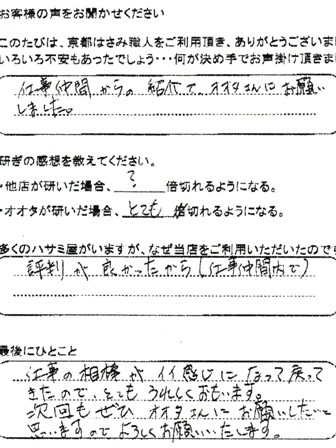 お客様の声をお聞かせください
このたびは、京都はさみ職人をご利用頂き、ありがとうございま
いろいろ不安もあったでしょう・・・何が決め手でお声掛け頂きま
仕事仲間からの紹介でオオタさんにお願い
しました。
研ぎの感想を教えてください。
・他店が研いだ場合、?倍切れるようになる。
・オオタが研いだ場合、とても切れるようになる。
多くのハサミ屋がいますが、なぜ当店をご利用いただいたので
評判が良かったから(仕事仲間内で)
最後にひとこと
仕事の相棒がイイ感じになって戻って
きたので、とてもうれしくおもいます。
次回もぜひオオタさんにお願いしたいと
思いますのでよろしくお願いいたします。